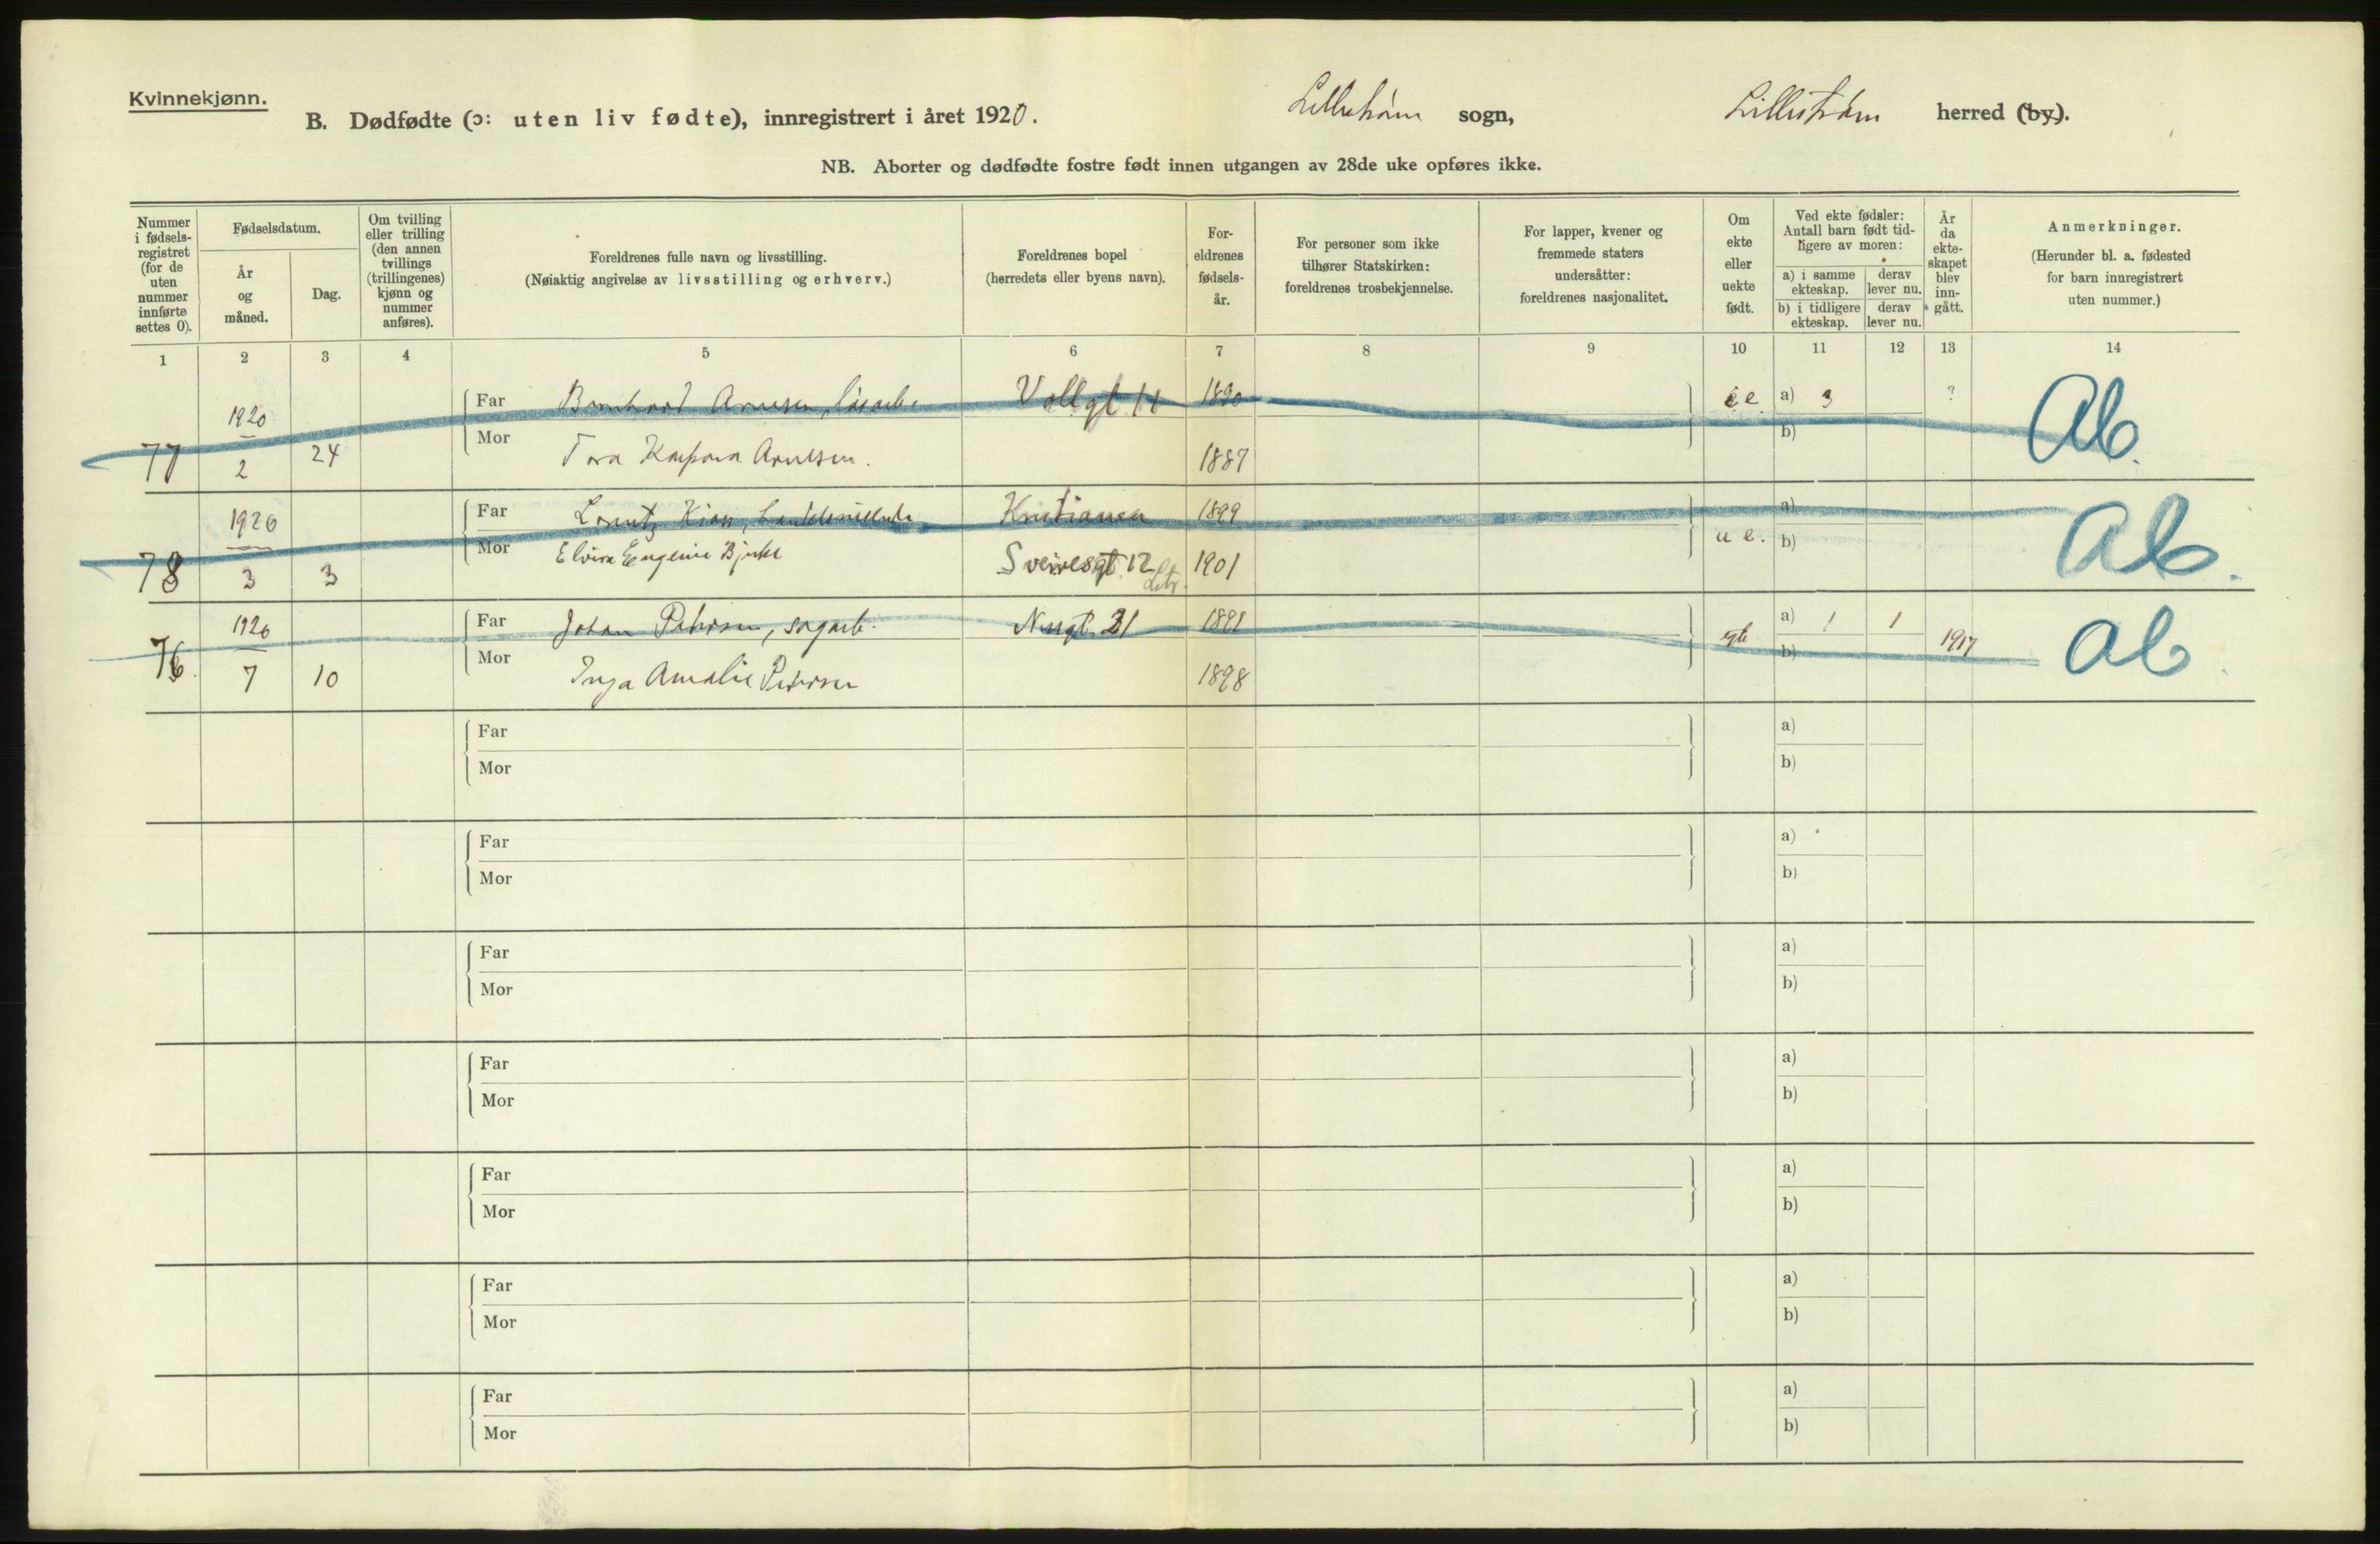 Kvinnekjønn.
B. Dødfødte (ɔ: uten liv fødte), innregistrert i året 1920. Lillestrøm sogn, Lillestrøm herred (by).
NB. Aborter og dødfødte fostre født innen utgangen av 28de uke opføres ikke.
Nummer i fødsels-registret (for de uten nummer innførte settes 0).
Fødselsdatum.
År og måned.
Dag.
Om tvilling eller trilling (den annen tvillings (trillingenes) kjønn og nummer anføres).
Foreldrenes fulle navn og livsstilling.
(Nøiaktig angivelse av livsstilling og erhverv.)
Foreldrenes bopel
(herredets eller byens navn).
For-eldrenes fødsels-år.
For personer som ikke tilhører Statskirken: foreldrenes trosbekjennelse.
For lapper, kvener og fremmede staters undersåtter: foreldrenes nasjonalitet.
Om ekte eller uekte født.
Ved ekte fødsler: Antall barn født tid-ligere av moren:
a) i samme ekteskap.
derav lever nu.
b) i tidligere ekteskap.
derav lever nu.
År da ekte-skapet blev inn-gått.
Anmerkninger.
(Herunder bl. a. fødested for barn innregistrert uten nummer.)
1 2 3 4 5 6 7 8 9 10 11 12 13 14
1920 Far Arnesen, Vollgt 11 1890 a) 3 ? Ab.
77 2 24 Mor Tora Arnesen. 1887 b)
1920 Far Kristiania 1899 a) Ab.
78 3 3 Mor Elvira Eugenie Sverresgt. 12 1901 u e. b)
1920 Far Johan Petersen, sagarb. 21 1891 a) 1 1 1917 Ab
76. 7 10 Mor Inga Amalie Petersen 1898 b)
Far a)
Mor b)
Far a)
Mor b)
Far a)
Mor b)
Far a)
Mor b)
Far a)
Mor b)
Far a)
Mor b)
Far a)
Mor b)